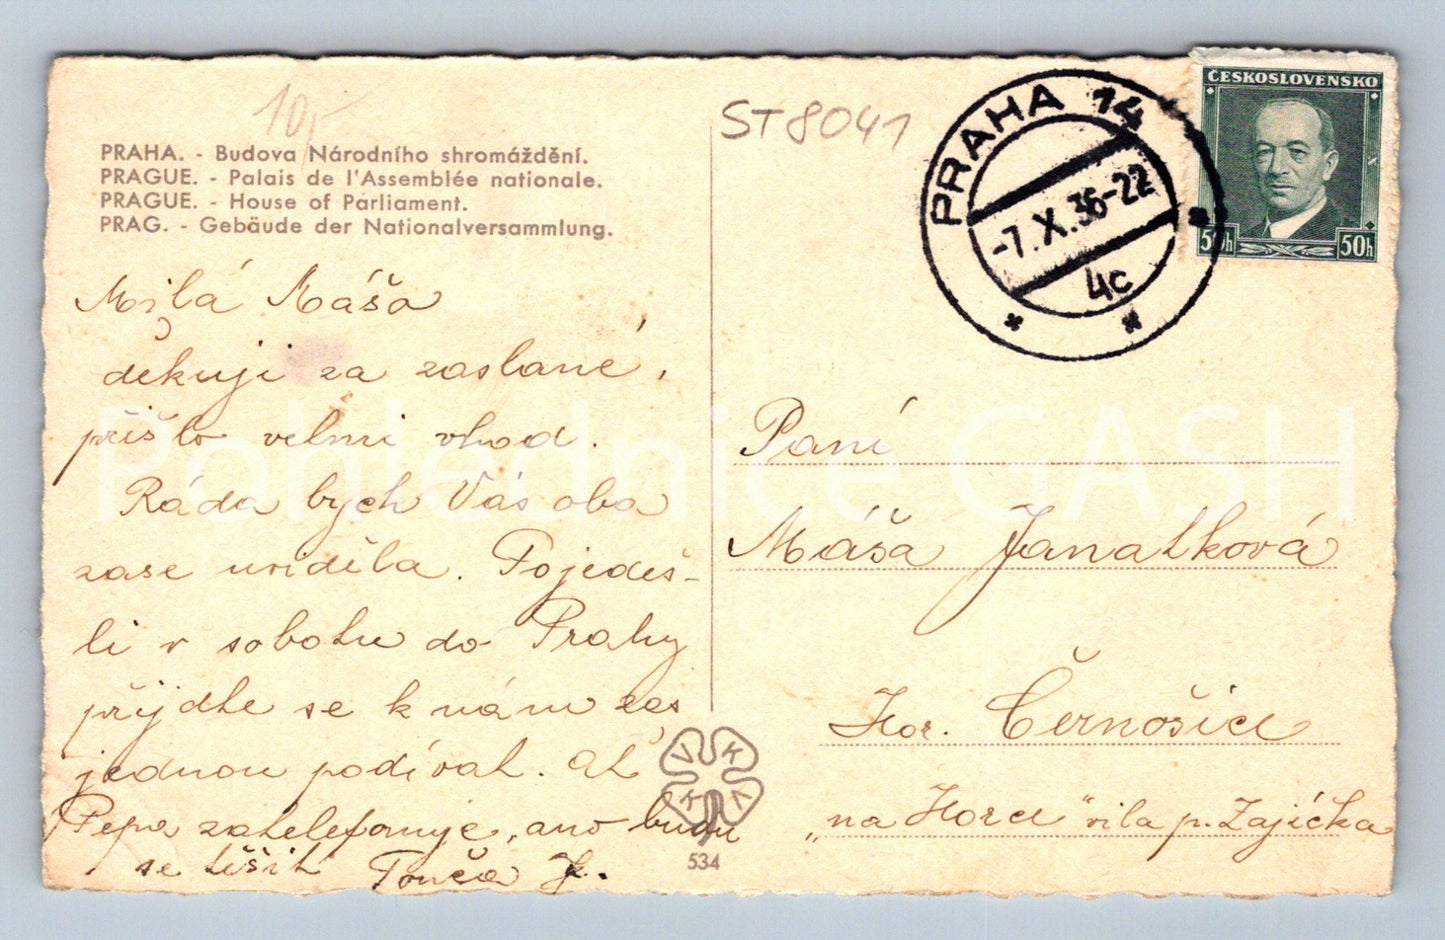 10,-
ST8041
PRAHA. - Budova Národního shromáždění.
PRAGUE. - Palais de l'Assemblée nationale.
PRAGUE. - House of Parliament.
PRAG. - Gebäude der Nationalversammlung.
Milá Mášo
děkuji za zaslané,
přišlo velmi vhod.
Ráda bych Vás oba
zase uviděla. Pojedeš-
li v sobotu do Prahy
přijďte se k nám zas
jednou podívat. Ať
Pepa zatelefonuje, ano budu
se těšit Tonča J.
PRAHA 14
-7.X.36-22
4c
ČESKOSLOVENSKO
50h 50h
Paní
Máša Janatková
Hor. Černošice
„na Horce" vila p. Zajíčka
V K K V
534
Pohlednice GASH